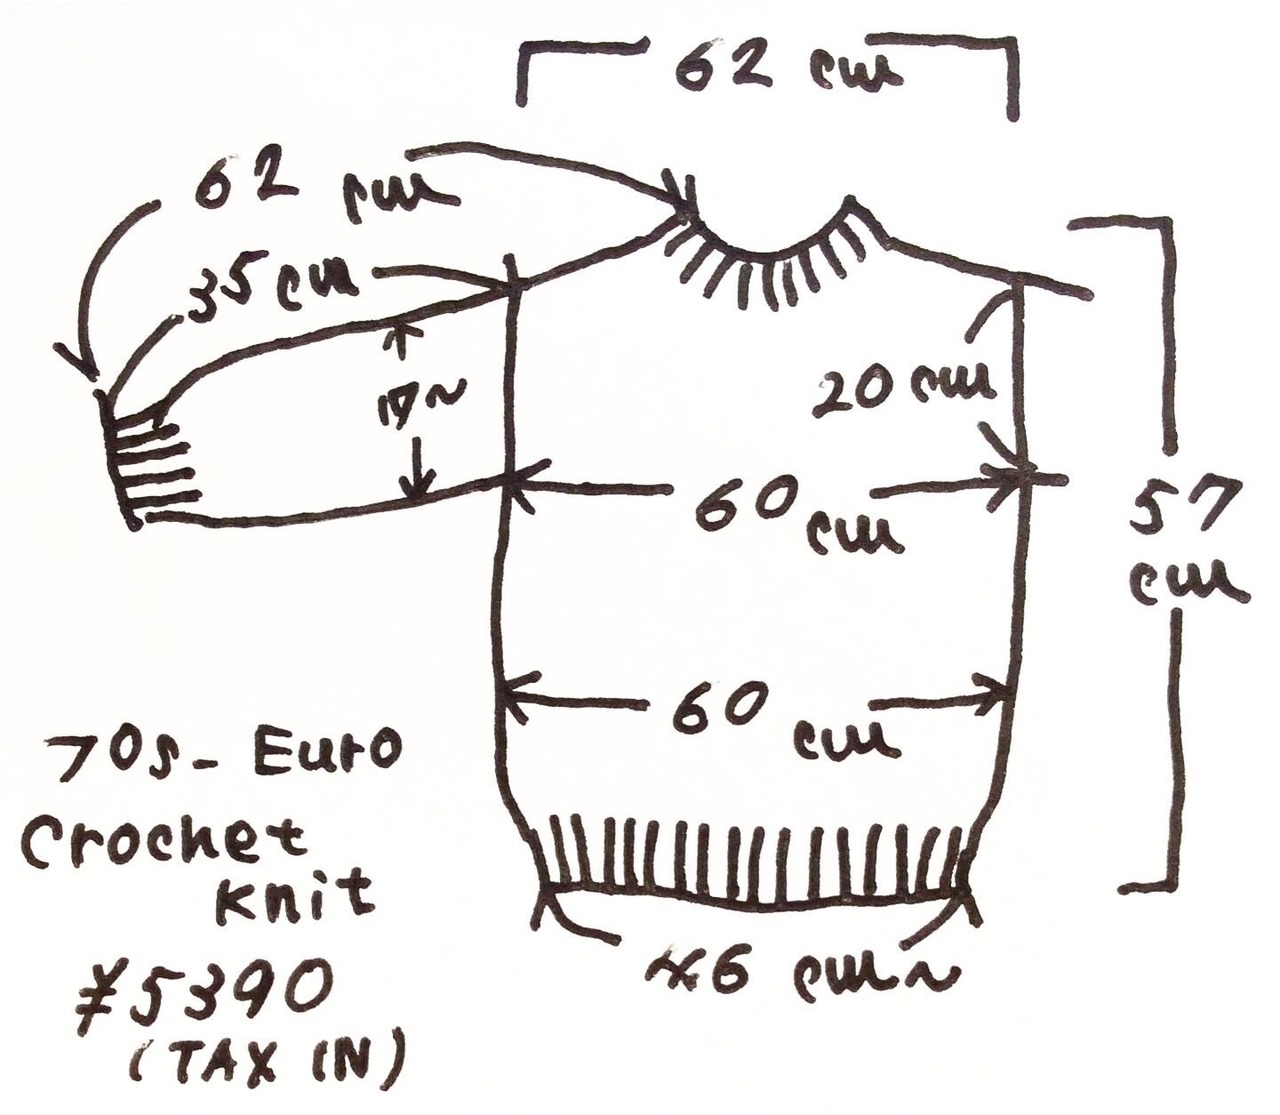 62 cm
62 cm
35 cm
20 cm
60 cm
57
cm
60 cm
70s - Euro
Crochet
Knit
¥5390
(TAX IN)
46 cm~